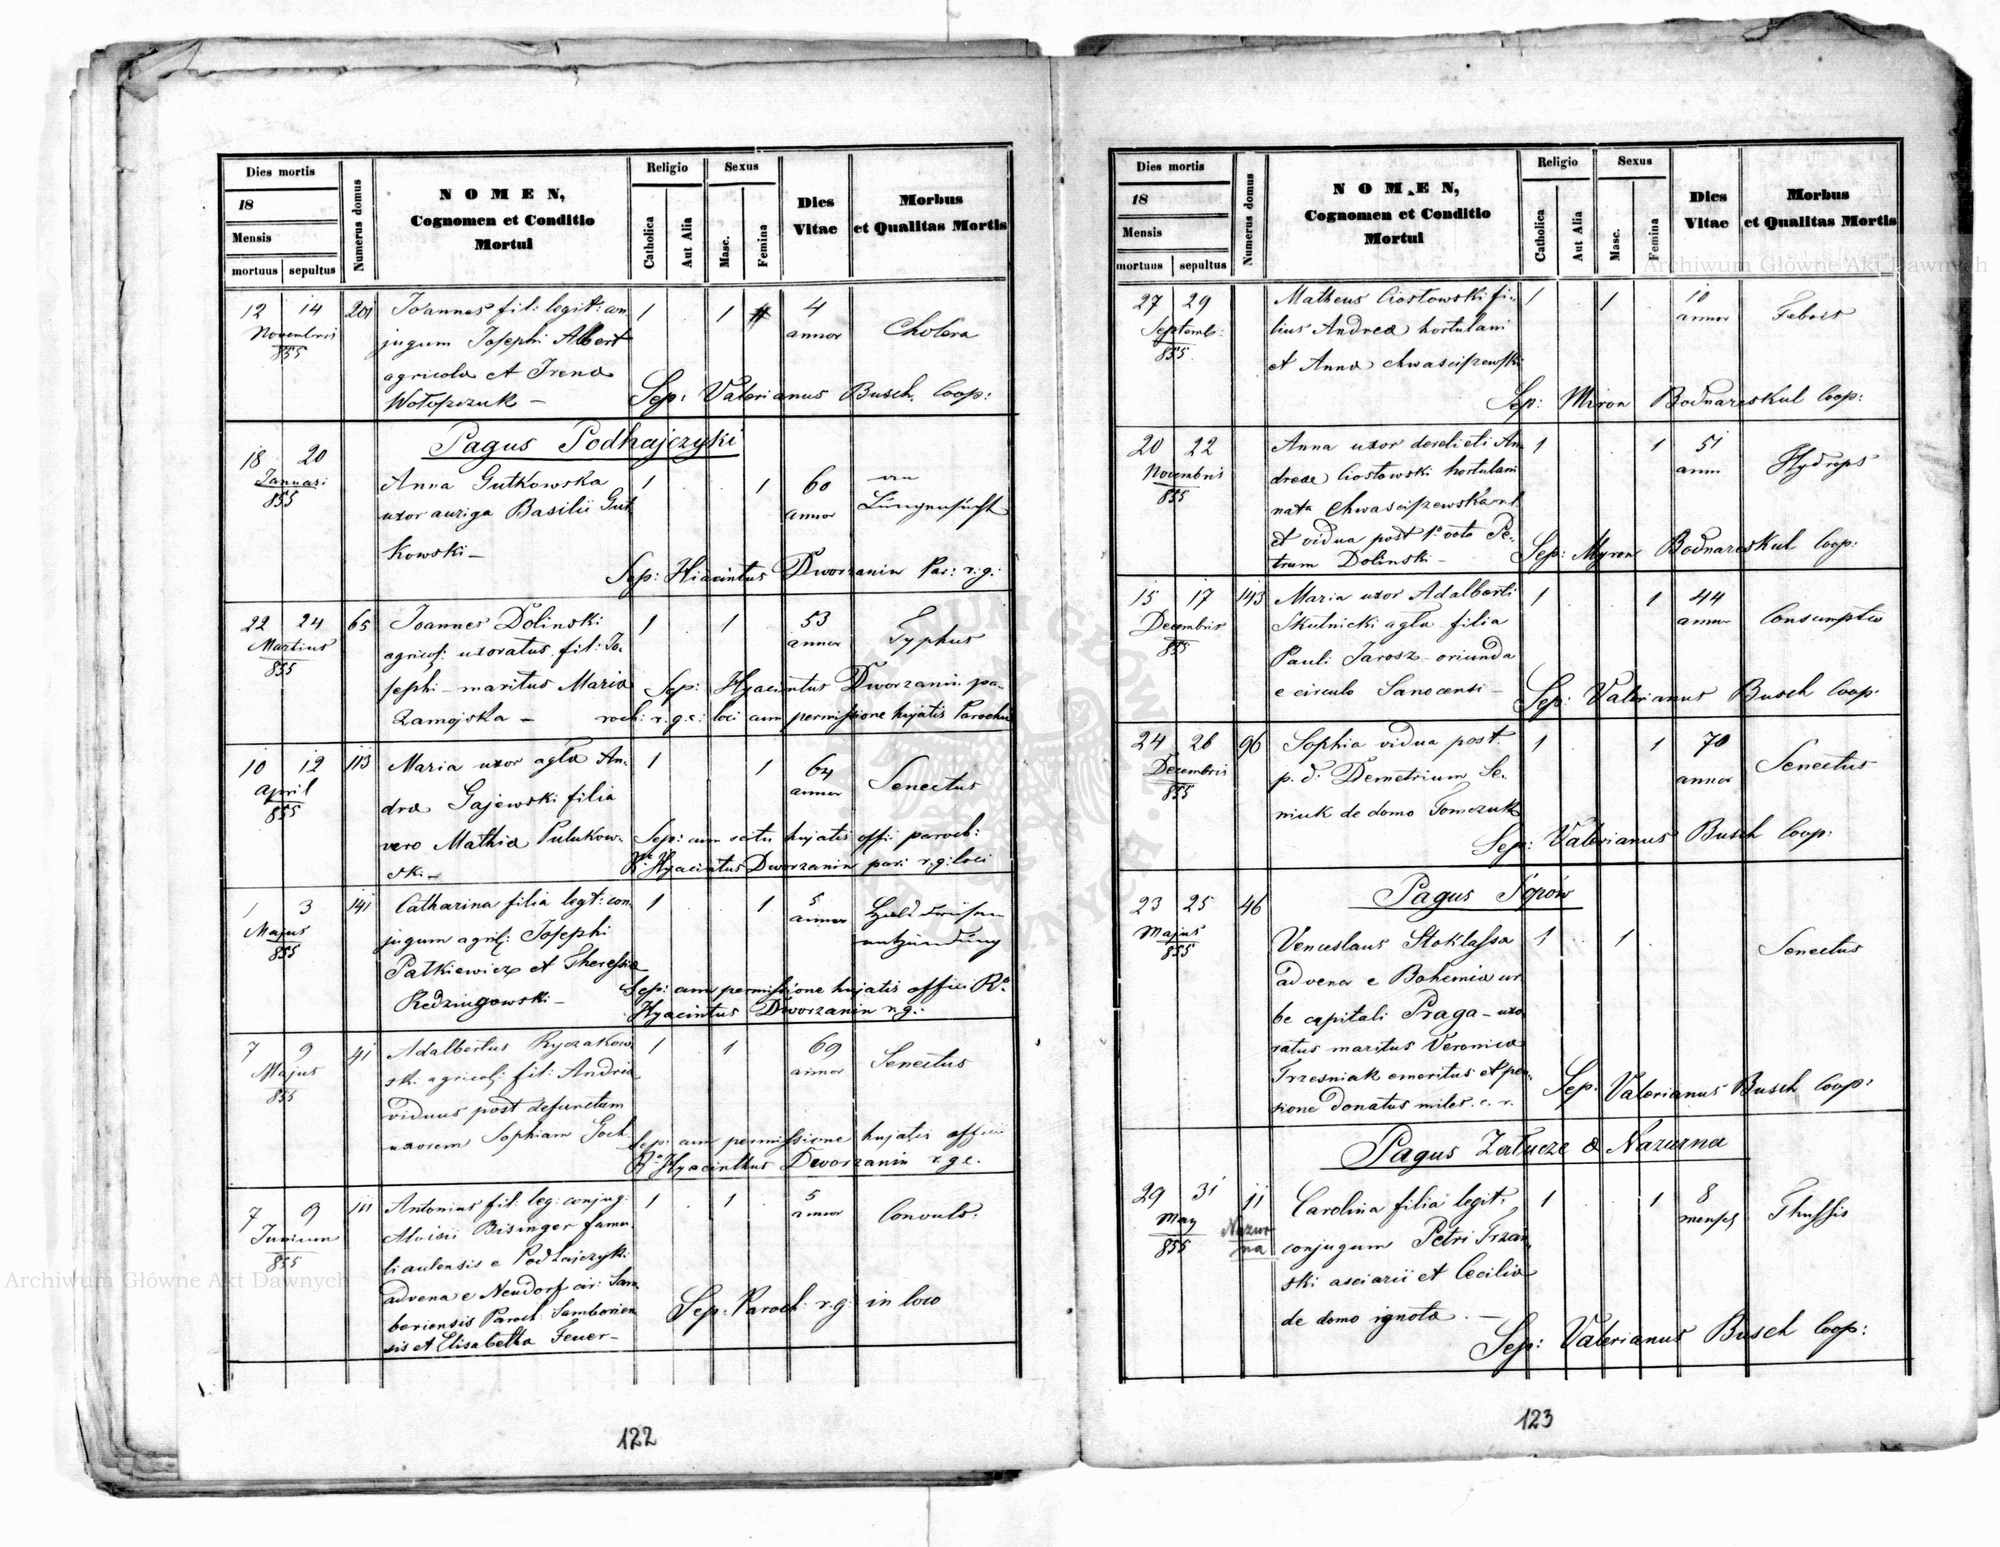 Dies mortis
18
Mensis
mortuus sepultus
Numerus domus
NOMEN,
Cognomen et Conditio
Mortui
Religio
Catholica
Aut Alia
Sexus
Masc.
Femina
Dies
Vitae
Morbus
et Qualitas Mortis
12 14 201 Joannes fil: legit: con 1 1 4
Novembris jugum Josephi Albert annor Cholera
855 agricola et Irena
Wołoszczuk — Sep: Valerianus Busch. Coop:
Pagus Podhajczyki
18 20
Januari Anna Gutkowska 1 1 60
855 uxor auriga Basilii Gut annor Lungensucht
kowski — Sep: Hiacintus Dworzanin Par: r: g:
22 24 65 Joannes Dolinski 1 1 53
Martius agricol: uxoratus fil: Jo- annor Typhus
855 sephi – maritus Maria Sep: Hyacintus Dworzanin pa-
Zamojska — roch: r: g: c: loci cum permissione hujatis Parochi
10 12 113 Maria uxor agla An- 1 1 64
April drea Gajewski filia annor Senectus
855 vero Mathia Pulukow- Sep: cum scitu hujatis offii paroch:
ski — Hyacintus Dworzanin par: r: g: loci
1 3 141 Catharina filia legt: con- 1 1 5
Majus jugum agril: Josephi annor
855 Patkiewicz et Theresia entzündung
Redzingowski — Sep: cum permissione hujatis officii R.
Hyacintus Dworzanin r. g.:
7 9 41 Adalbertus Ryczakow 1 1 69
Majus ski agricol: fil: Andrea annor Senectus
855 viduus post defunctam
uxorem Sophiam Goch. Sep: cum permissione hujatis officii
R. Hyacinthus Dworzanin r. g. c.
7 9 111 Antonius fil: leg: conjug: 1 1 5
Junium Aloisii Bisinger famu- annor Convuls.
855 li aulensis e Podhajczyki
advena e Neudorf cir: Sam-
boriensis Paroch: Samborien Sep: Paroch: r. g: in loco
sis et Elisabetha Feuer —
122
Dies mortis
18
Mensis
mortuus sepultus
Numerus domus
NOMEN,
Cognomen et Conditio
Mortui
Religio
Catholica
Aut Alia
Sexus
Masc.
Femina
Dies
Vitae
Morbus
et Qualitas Mortis
27 29 Matheus Ciostowski fi- 1 1 10
Septemb: lius Andrea hortulani annor Febris
855. et Anna Chwasciszewski
Sep: Miron Bodnareskul Coop:
20 22 Anna uxor derelicti An 1 1 51
Novembris dreae Ciostowski hortulani annor Hydrops
855 nata Chwasciszewska
et vidua post 1º voto Pe-
trum Dolinski — Sep: Myron Bodnareskul Coop:
15 17 143 Maria uxor Adalberti 1 1 44
Decembris Skulnicki agla filia annor Consumptio
855 Pauli Jarosz oriunda
e circulo Sanocensi — Sep: Valerianus Busch Coop:
24 26 96 Sophia vidua post. 1 1 70
Decembris p. d: Demetrium Se- annor Senectus
855 niuk de domo Tomczuk
Sep: Valerianus Busch Coop:
Pagus Sopów
23 25 46
Majus Venceslaus Stoklassa 1 1 Senectus
855 advena e Bohemia ur
be capitali Praga – uxo
ratus maritus Veronica
Trzesniak emeritus et pen-
sione donatus miles. c. r. Sep: Valerianus Busch Coop:
Pagus Załucze & Nazurna
29 31 11 Carolina filia legit. 1 1 8
May Nazur conjugum Petri Trzan menses Thussis
855 na ski asciarii et Cecilia
de domo ignota. —
Sep: Valerianus Busch Coop:
123
Archiwum Główne Akt Dawnych
Archiwum Główne Akt Dawnych